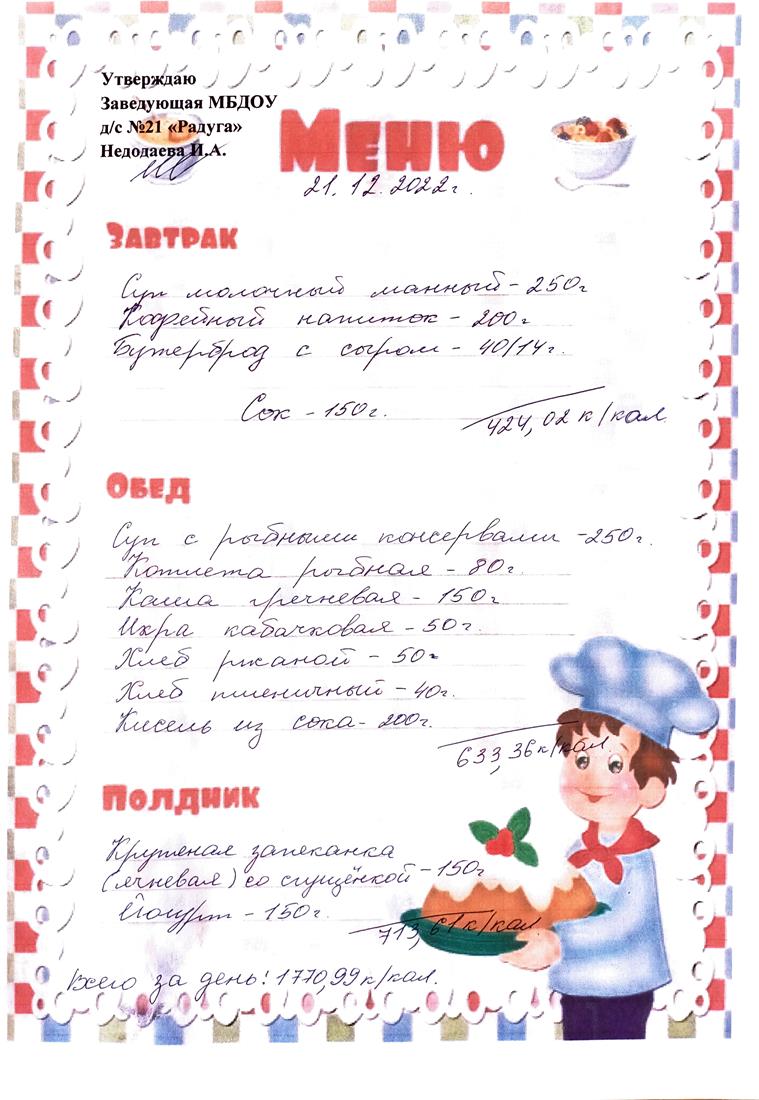 Утверждаю
Заведующая МБДОУ
д/с №21 «Радуга»
Недодаева И.А.
Меню
21.12.2022г.
Завтрак
Суп молочный манный - 250г
Кофейный напиток - 200г
Бутерброд с сыром - 40/14г.
Сок - 150г.
424,02 к/кал
Обед
Суп с рыбными консервами - 250г.
Котлета рыбная - 80г.
Каша гречневая - 150г
Икра кабачковая - 50г.
Хлеб ржаной - 50г
Хлеб пшеничный - 40г.
Кисель из сока - 200г.
633,36 к/кал.
Полдник
Крупеная запеканка
(ячневая) со сгущёнкой - 150г
Йогурт - 150г.
713,61 к/кал.
Всего за день: 1770,99 к/кал.